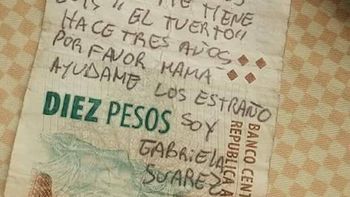 ME TIENE
LUIS "EL TUERTO"
HACE TRES AÑOS
POR FAVOR MAMA
AYUDAME LOS ESTRAÑO
DIEZ PESOS SOY
GABRIELA
SUAREZ
BANCO CENT
REPUBLICA A